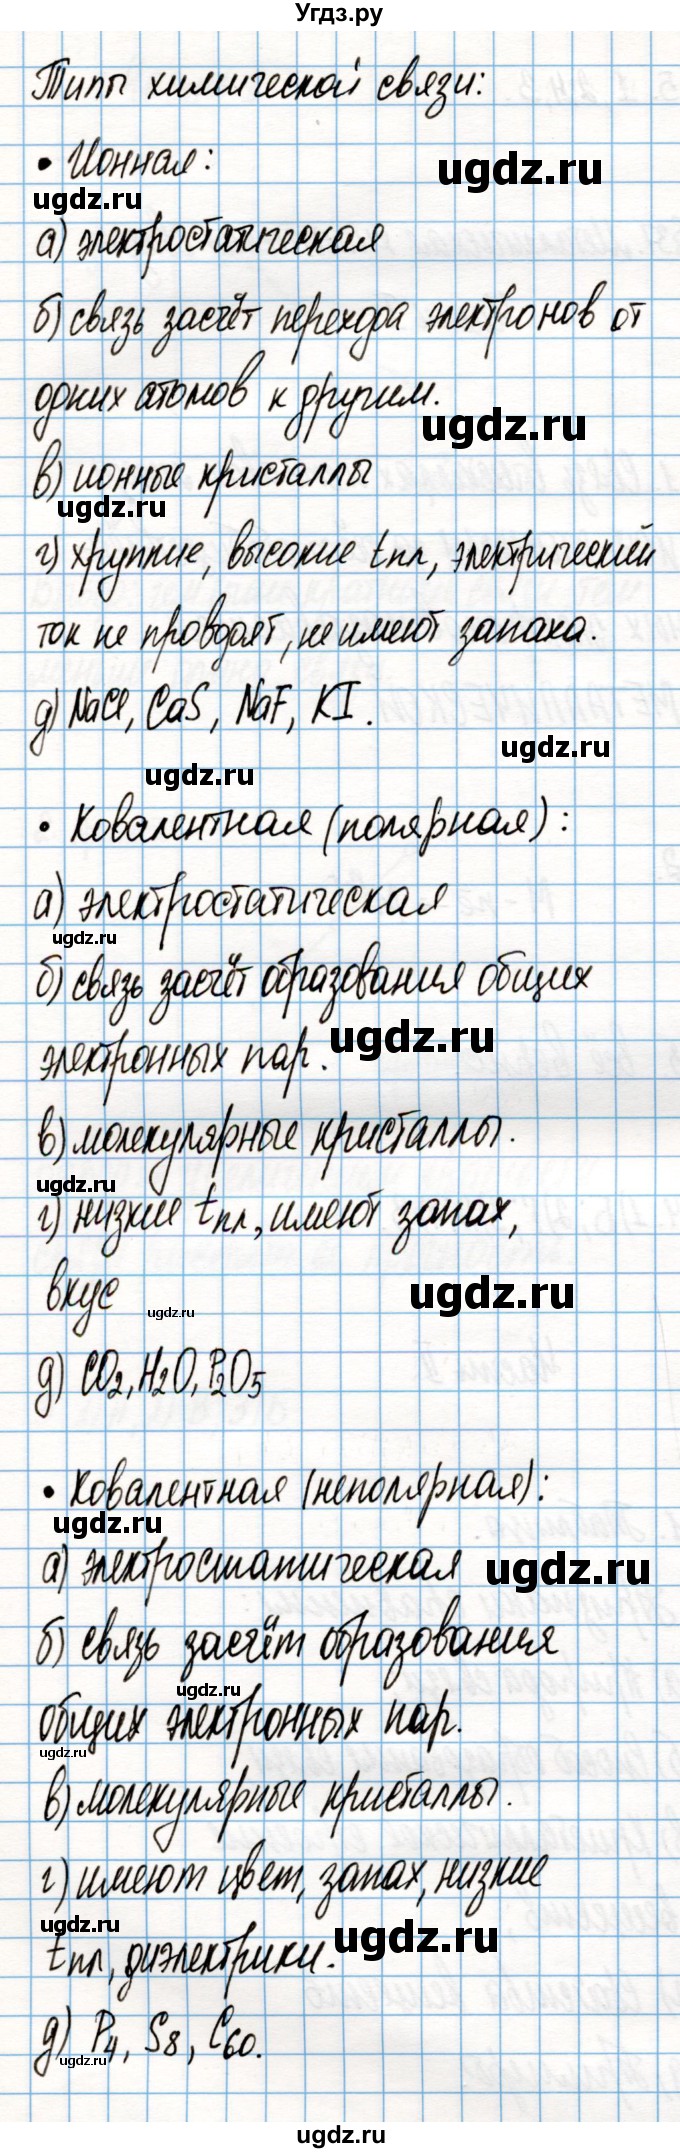 Угдз.ру
Типы химической связи:
• Ионная:
ugdz.ru
ugdz.ru
а) электростатическая
б) связь засчёт перехода электронов от
одних атомов к другим.
ugdz.ru
в) ионные кристаллы
ugdz.ru
г) хрупкие, высокие tпл, электрический
ток не проводят, не имеют запаха.
д) NaCl, CaS, NaF, KI.
ugdz.ru
ugdz.ru
• Ковалентная (полярная):
а) электростатическая
ugdz.ru
б) связь засчёт образования общих
электронных пар.
ugdz.ru
в) молекулярные кристаллы.
ugdz.ru
г) низкие tпл, имеют запах,
вкус
ugdz.ru
ugdz.ru
д) CO2, H2O, P2O5
• Ковалентная (неполярная):
ugdz.ru
а) электростатическая
ugdz.ru
б) связь засчёт образования
ugdz.ru
общих электронных пар.
ugdz.ru
в) молекулярные кристаллы.
г) имеют цвет, запах, низкие
ugdz.ru
tпл, диэлектрики.
ugdz.ru
д) P4, S8, C60.
ugdz.ru
ugdz.ru